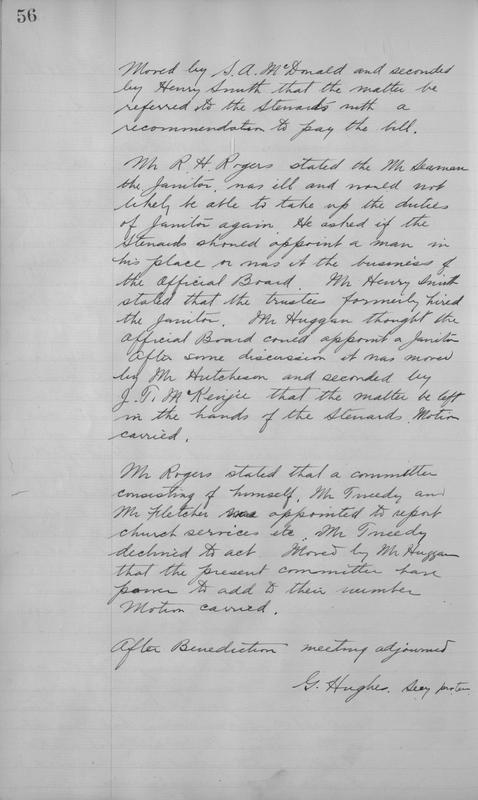 56
Moved by S. A. McDonald and seconded
by Henry Smith that the matter be
referred to the Stewards with a
recommendation to pay the bill.
Mr R. H. Rogers stated the Mr Seaman
the Janitor, was ill and would not
likely be able to take up the duties
of Janitor again. He asked if the
Stewards should appoint a man in
his place or was it the business of
the Official Board. Mr Henry Smith
stated that the trustees formerly hired
the Janitor. Mr Huggan thought the
Official Board could appoint a Janitor
After some discussion it was moved
by Mr Hutcheson and seconded by
J. T. McKenzie that the matter be left
in the hands of the Stewards. Motion
carried.
Mr Rogers stated that a committee
consisting of himself, Mr Tweedy and
Mr Fletcher was appointed to report
church services etc. Mr Tweedy
declined to act. Moved by Mr Huggan
that the present committee have
power to add to their number
Motion carried.
After Benediction meeting adjourned
G. Hughes. Secy protem